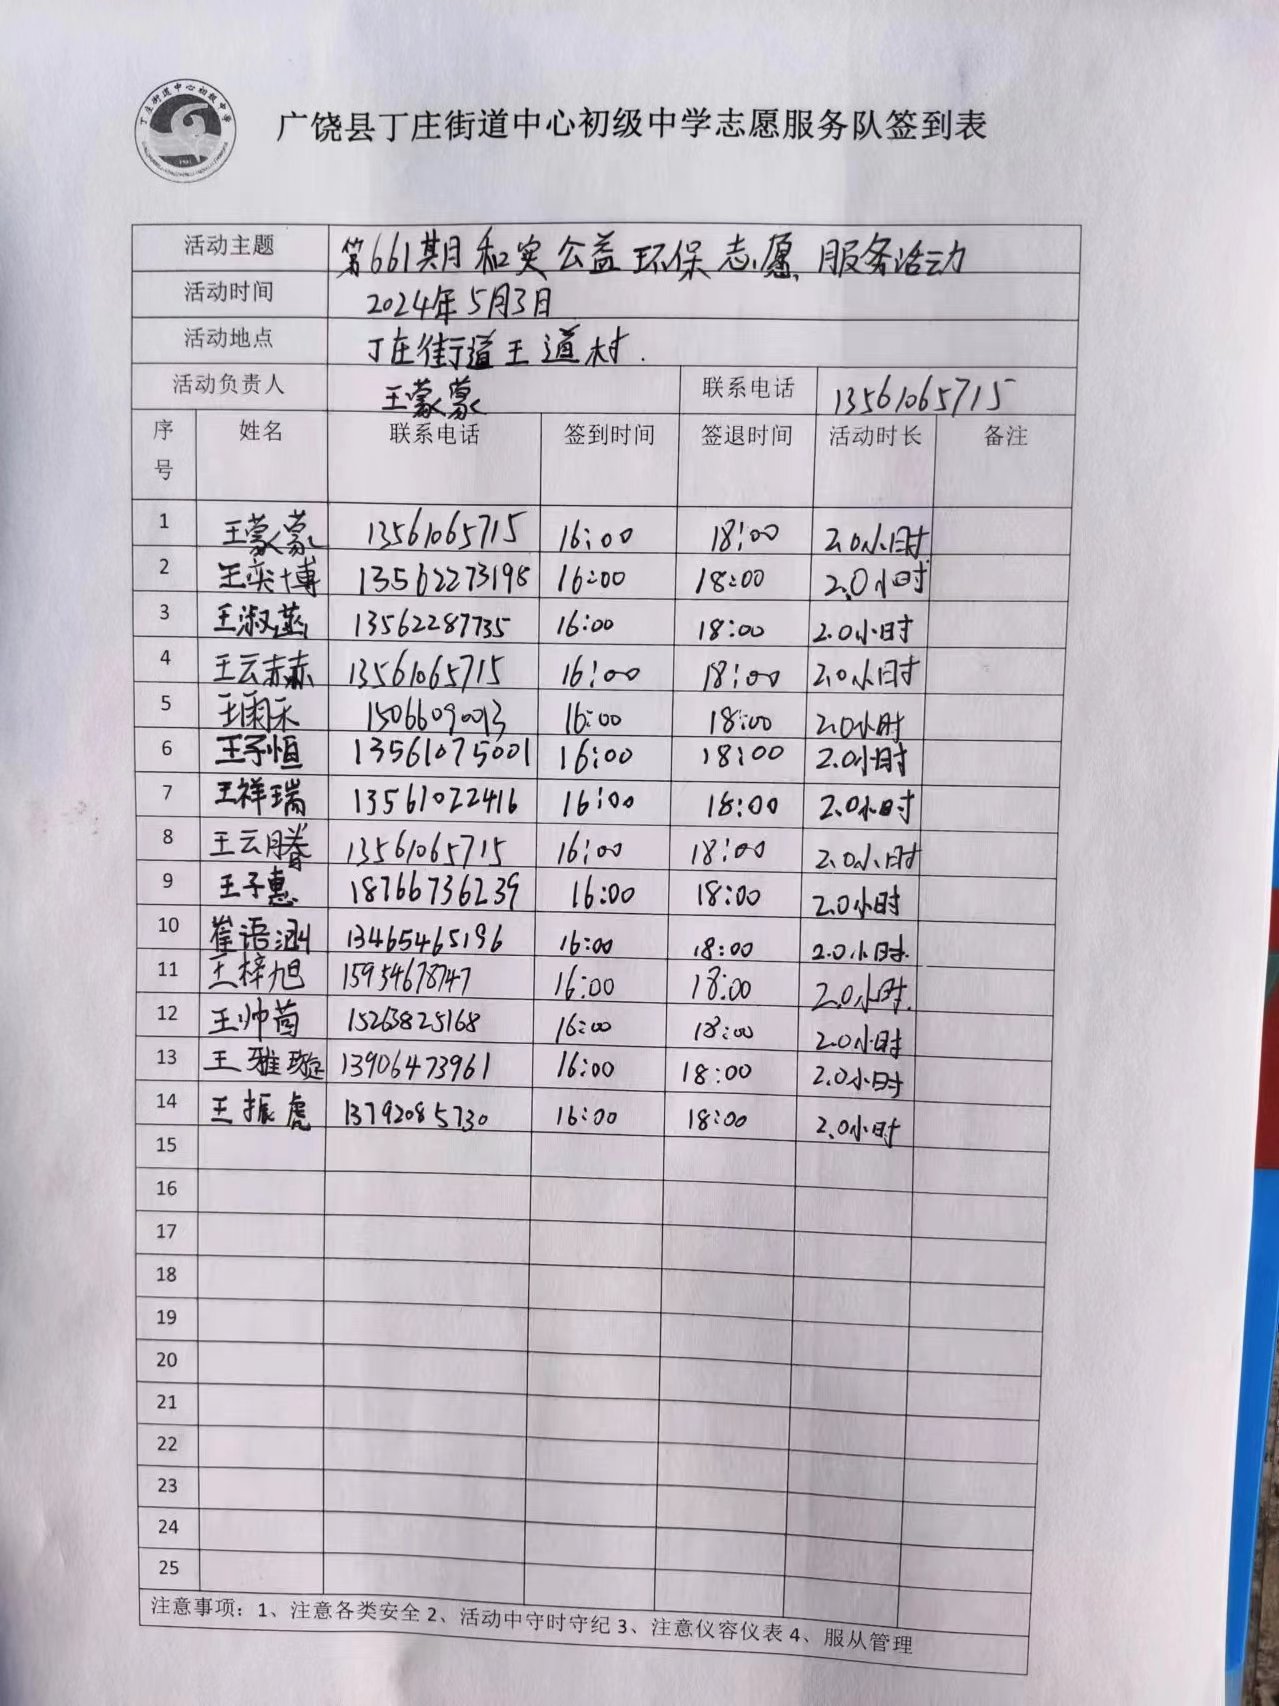 丁庄街道中心初级中学
广饶县丁庄街道中心初级中学志愿服务队签到表
活动主题 第661期和实公益环保志愿服务活动
活动时间 2024年5月3日
活动地点 丁庄街道王道村.
活动负责人 王蒙蒙 联系电话 13561065715
序号 姓名 联系电话 签到时间 签退时间 活动时长 备注
1 王蒙蒙 13561065715 16:00 18:00 2.0小时
2 王奕博 13562273198 16:00 18:00 2.0小时
3 王淑燕 13562287735 16:00 18:00 2.0小时
4 王云赫 13561065715 16:00 18:00 2.0小时
5 王雨禾 15066090013 16:00 18:00 2.0小时
6 王子恒 13561075001 16:00 18:00 2.0小时
7 王祥瑞 13561022416 16:00 18:00 2.0小时
8 王云腾 13561065715 16:00 18:00 2.0小时
9 王子惠 18766736239 16:00 18:00 2.0小时
10 崔语涵 13465465196 16:00 18:00 2.0小时.
11 王梓旭 15954678747 16:00 18:00 2.0小时.
12 王帅茵 15263825168 16:00 18:00 2.0小时
13 王雅璇 13906473961 16:00 18:00 2.0小时
14 王振虎 13792085730 16:00 18:00 2.0小时
15
16
17
18
19
20
21
22
23
24
25
注意事项：1、注意各类安全 2、活动中守时守纪 3、注意仪容仪表 4、服从管理